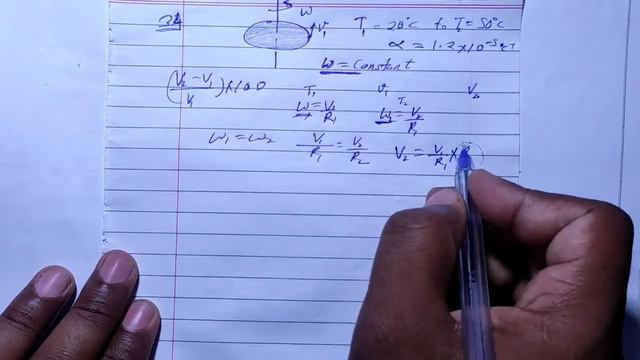 34 ω V₁ T₁ = 20°C to T₂ = 50°C
α = 1.2×10⁻⁵
ω = Constant
(V₂ - V₁ / V₁) × 100 T₁ V₁ V₂
ω = V₁/R₁ T₂ ω = V₂/R₁
ω₁ = ω₂ V₁/R₁ = V₂/R₂ V₂ = V₁/R₁ ×